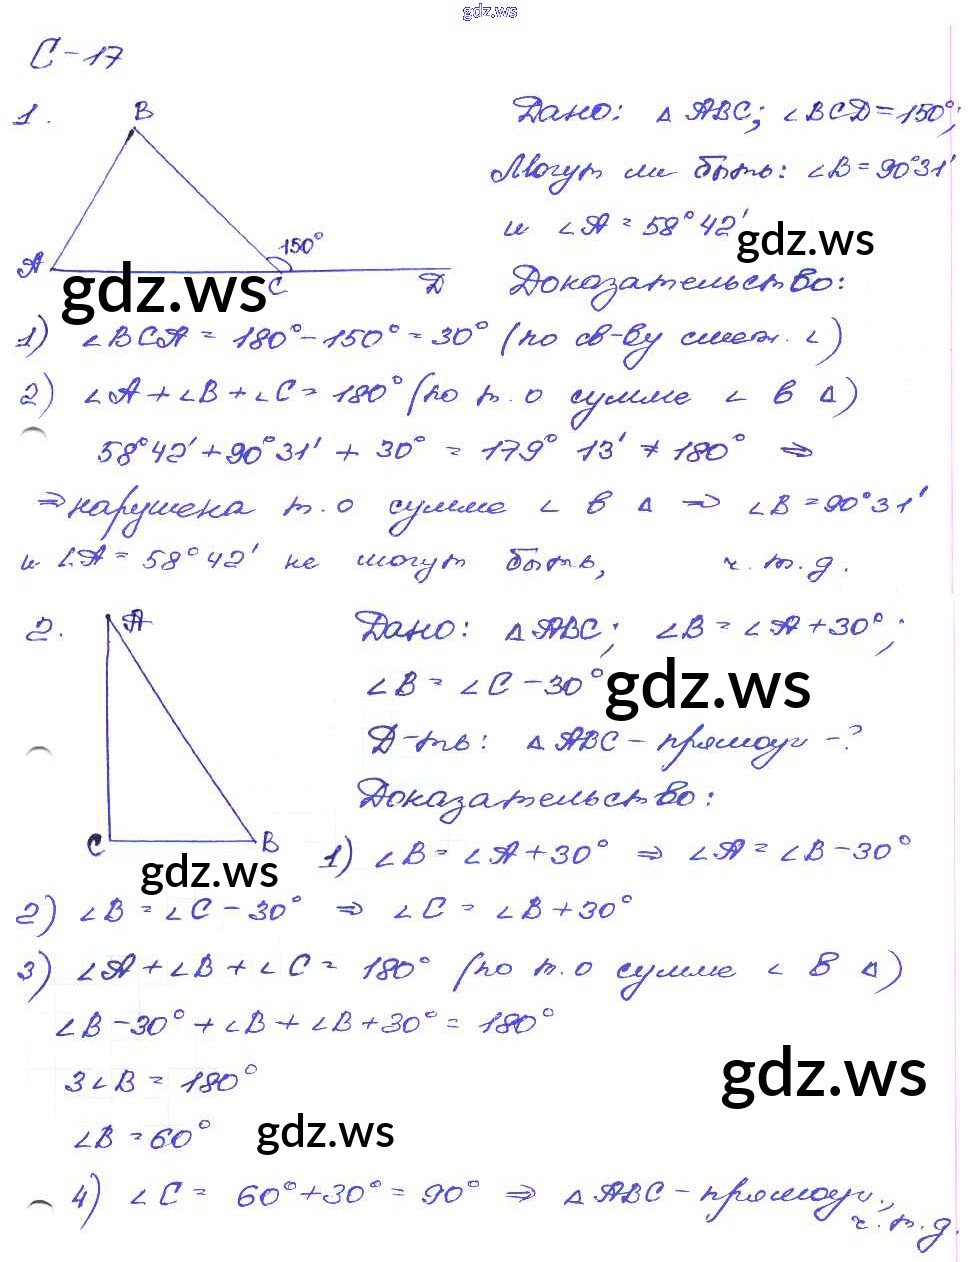 gdz.ws
С-17
1.
B
A
C
D
150°
Дано: △ ABC; ∠BCD = 150°;
Могут ли быть: ∠B = 90°31'
и ∠A = 58°42'
gdz.ws
gdz.ws
Доказательство:
1) ∠BCA = 180° - 150° = 30° (по св-ву смеж. ∠)
2) ∠A + ∠B + ∠C = 180° (по т. о сумме ∠ в △)
58°42' + 90°31' + 30° = 179° 13' ≠ 180° ⇒
⇒ нарушена т. о сумме ∠ в △ ⇒ ∠B = 90°31'
и ∠A = 58°42' не могут быть, ч.т.д.
2.
A
C
B
Дано: △ABC; ∠B = ∠A + 30°;
∠B = ∠C - 30°
gdz.ws
Д-ть: △ABC - прямоуг -?
Доказательство:
gdz.ws
1) ∠B = ∠A + 30° ⇒ ∠A = ∠B - 30°
2) ∠B = ∠C - 30° ⇒ ∠C = ∠B + 30°
3) ∠A + ∠B + ∠C = 180° (по т. о сумме ∠ в △)
∠B - 30° + ∠B + ∠B + 30° = 180°
3∠B = 180°
gdz.ws
∠B = 60°
gdz.ws
4) ∠C = 60° + 30° = 90° ⇒ △ABC - прямоуг.,
ч.т.д.